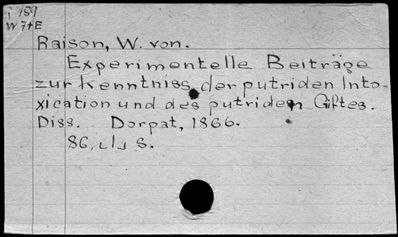 i 159
W 7+E
Raison, W. von.
Experimentelle Beiträge
zur Kenntniss der putriden Into-
xication und des putriden Giftes.
Diss. Dorpat, 1866.
86, S.